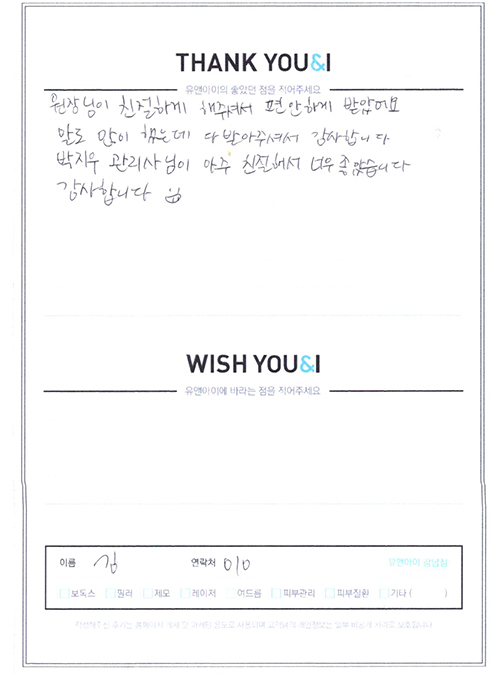 THANK YOU&I
유앤아이의 좋았던 점을 적어주세요
원장님이 친절하게 해주셔서 편안하게 받았어요
말도 많이 했는데 다 받아주셔서 감사합니다
박지우 관리사님이 아주 친절해서 너무 좋았습니다
감사합니다
WISH YOU&I
유앤아이에 바라는 점을 적어주세요
이름 김 연락처 010 유앤아이 강남점
보톡스 필러 제모 레이저 여드름 피부관리 피부질환 기타 ( )